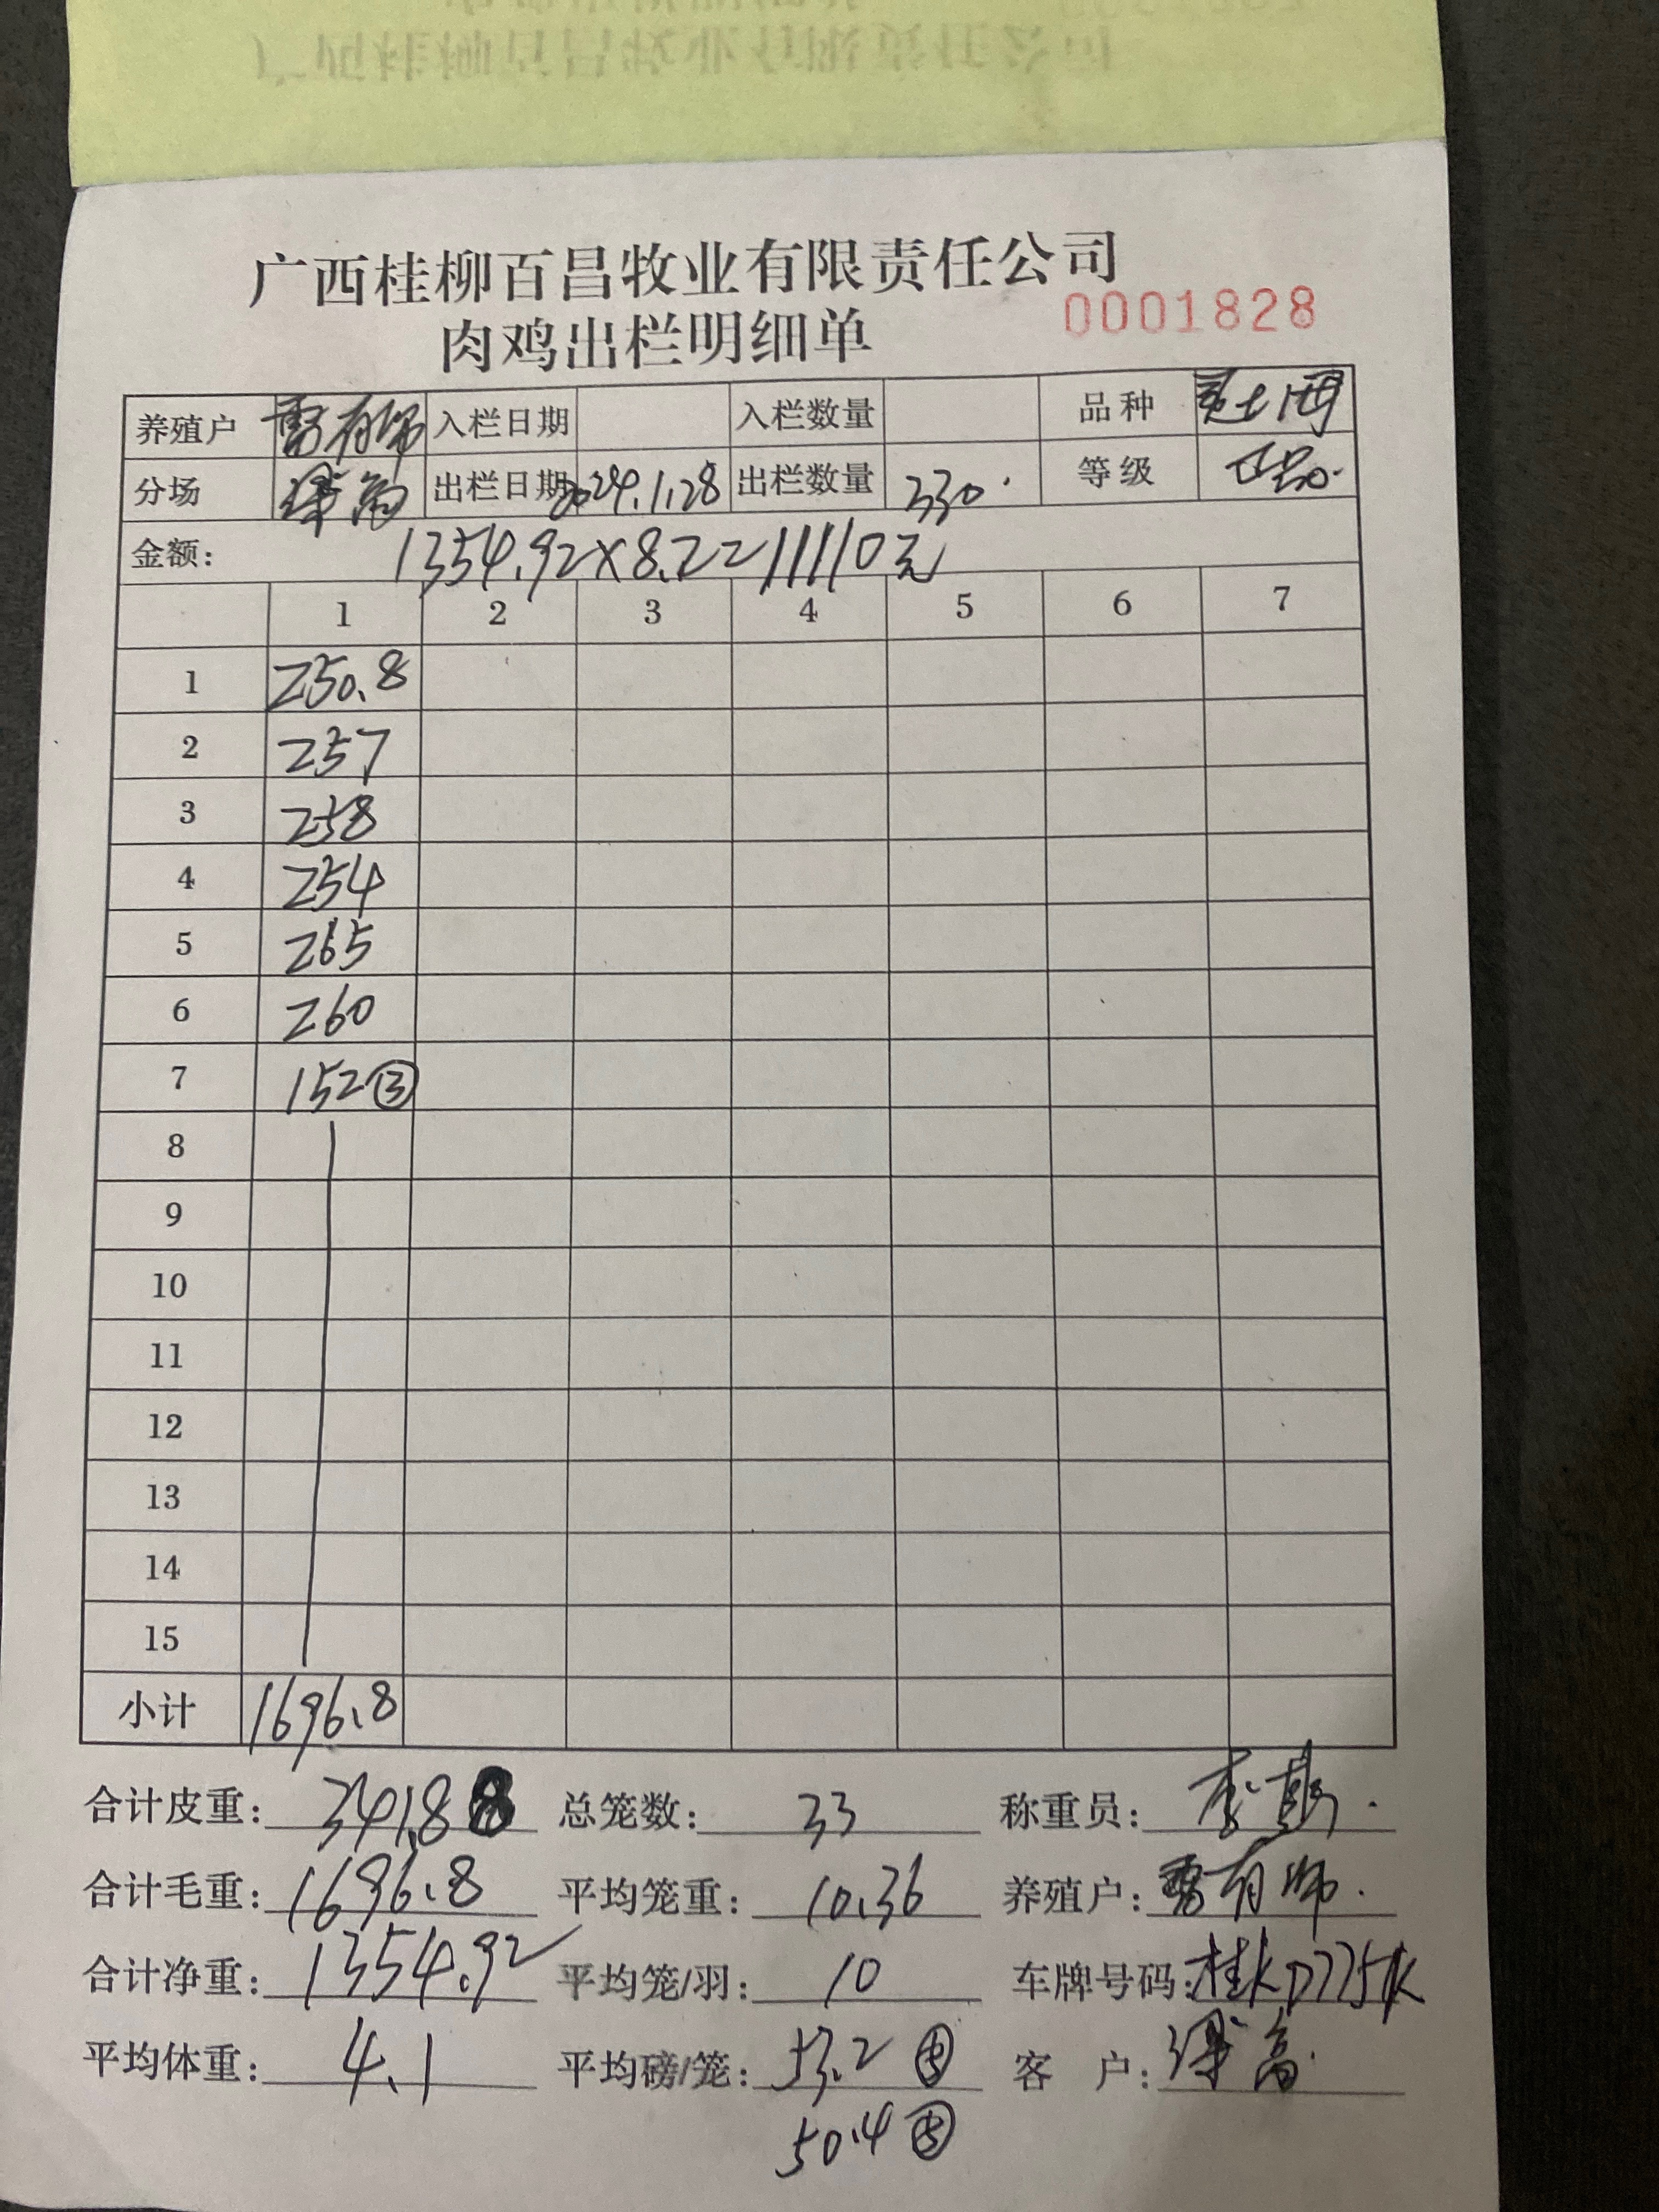 广西桂柳百昌牧业有限责任公司
肉鸡出栏明细单
0001828
养殖户 雷有 入栏日期 入栏数量 品种
分场 出栏日期 2024.1.28 出栏数量 330 等级
金额: 1354.92×8.2=11110元
1 2 3 4 5 6 7
1 250.8
2 257
3 258
4 254
5 265
6 260
7 152③
8
9
10
11
12
13
14
15
小计 1696.8
合计皮重: 341.88 总笼数: 33 称重员: 李
合计毛重: 1696.8 平均笼重: 10.36 养殖户: 雷有
合计净重: 1354.92 平均笼/羽: 10 车牌号码: 桂KD775K
平均体重: 4.1 平均磅/笼: 53.2 ⑤ 客 户:
50.4 ⑤